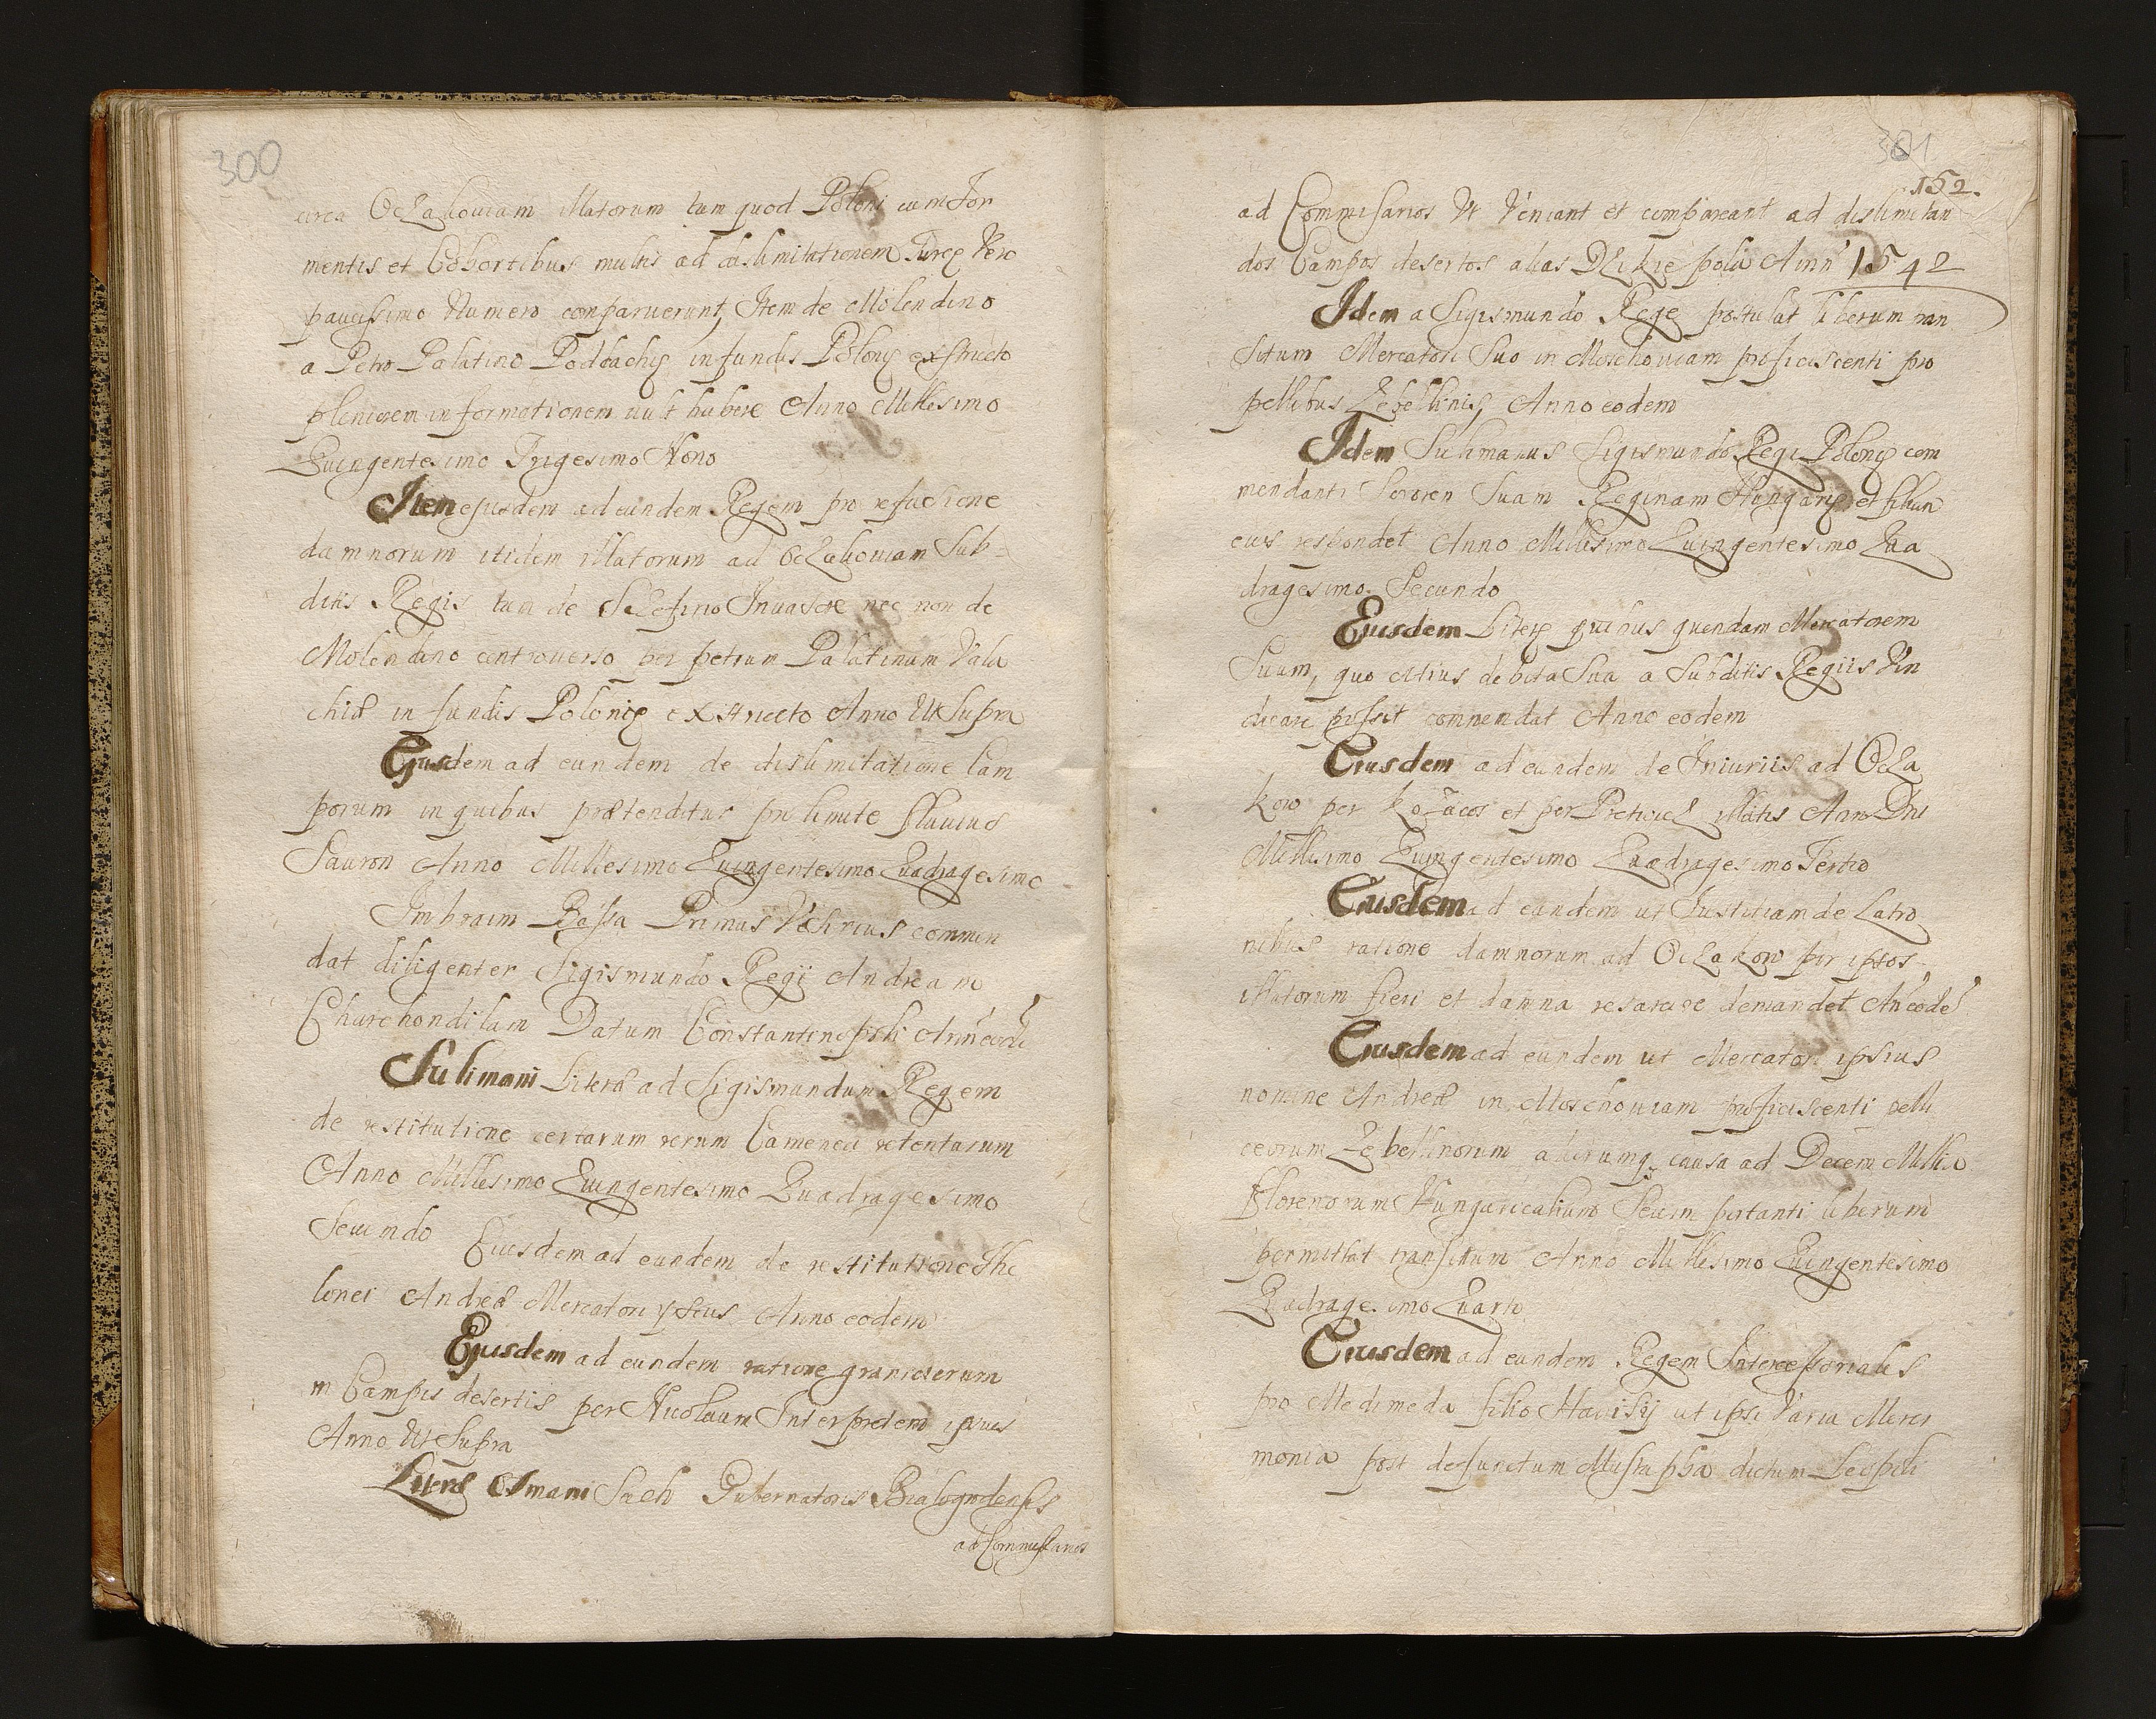 300
circa Oczakoviam illatorum tum quod Poloni cum Tor
mentis et Cohortibus multis ad dislimitationem Turcę Vero
paucissimo Numero comparuerunt, Item de Molendino
a Petro Palatino Valachię in fundis Polonię exstructo
pleniorem informationem vult habere Anno Millesimo
Quingentesimo Trigesimo Nono
Item ejusdem ad eundem Regem pro refusione
damnorum itidem illatorum ad Oczakoviam Sub-
ditis Regis tum de Invasore nec non de
Molendino controverso per petrum Palatinum Vala
chiæ in fundis Polonię exstructo Anno Ut Supra
Ejusdem ad eundem de dislimitatione Cam
porum in quibus prætenditur pro limite fluvius
Sauron Anno Millesimo Quingentesimo Quadragesimo
Imbraim Bassa Primus Vesirius commen
dat diligenter Sigismundo Regij Andream
Churchondilam Datum Constantinopoli Ann eode
Sulimani Literæ ad Sigismundum Regem
de restitutione certarum rerum Camenecii retentarum
Anno Millesimo Quingentesimo Quadragesimo
Secundo Eiusdem ad eundem de restitutione The
lonei Andreæ Mercatori ipsius Anno eodem
Ejusdem ad eundem ratione granicierum
in Campis desertis per Nicolaum Interpretem ipsius
Anno Ut Supra
Literæ Osmani Sach Gubernatoris Bialogrodensis
ad Commissarios
301
152.
ad Commissarios Ut Veniant et compareant ad dislimitan
dos Campos desertos alias Dzikie pola Ann 1542
Idem a Sigismundo Rege postulat liberum tran
situm Mercatori Suo in Moschoviam proficiscenti pro
pellibus Zebellinis, Anno eodem
Idem Sulimanus Sigismundo Regi Polonię com
mendanti Sororem Suam Reginam Hungarię et filium
eius respondet Anno Millesimo Quingentesimo Qua
dragesimo Secundo
Eiusdem Literę quibus quendam Mercatorem
Suum, quo citius debita Sua a Subditis Regiis Vin
dicare possit commendat Anno eodem
Eiusdem ad eundem de Iniuriis ad Ocza
kow per Kozacos et per Pretwicz illatis Ann Dni
Millesimo Quingentesimo Quadragesimo Tertio
Eiusdem ad eundem ut Iustitiam de Latro
nibus ratione damnorum ad Oczakow per ipsos
illatorum fieri et damna resarcire demandet An eode
Eiusdem ad eundem ut Mercatori ipsius
nomine Andreæ in Moschoviam proficiscenti pelli
ceorum Zebellinorum aliorumq causa ad Decem Millia
florenorum Hungaricalium Secum portanti liberum
permittat transitum Anno Millesimo Quingentesimo
Quadragesimo Quarto
Eiusdem ad eundem Regem Intercessorialis
pro Medimeda filio Havisij ut ipsi Varia Merci
monia post defunctum Mustapha dictum Leopoli